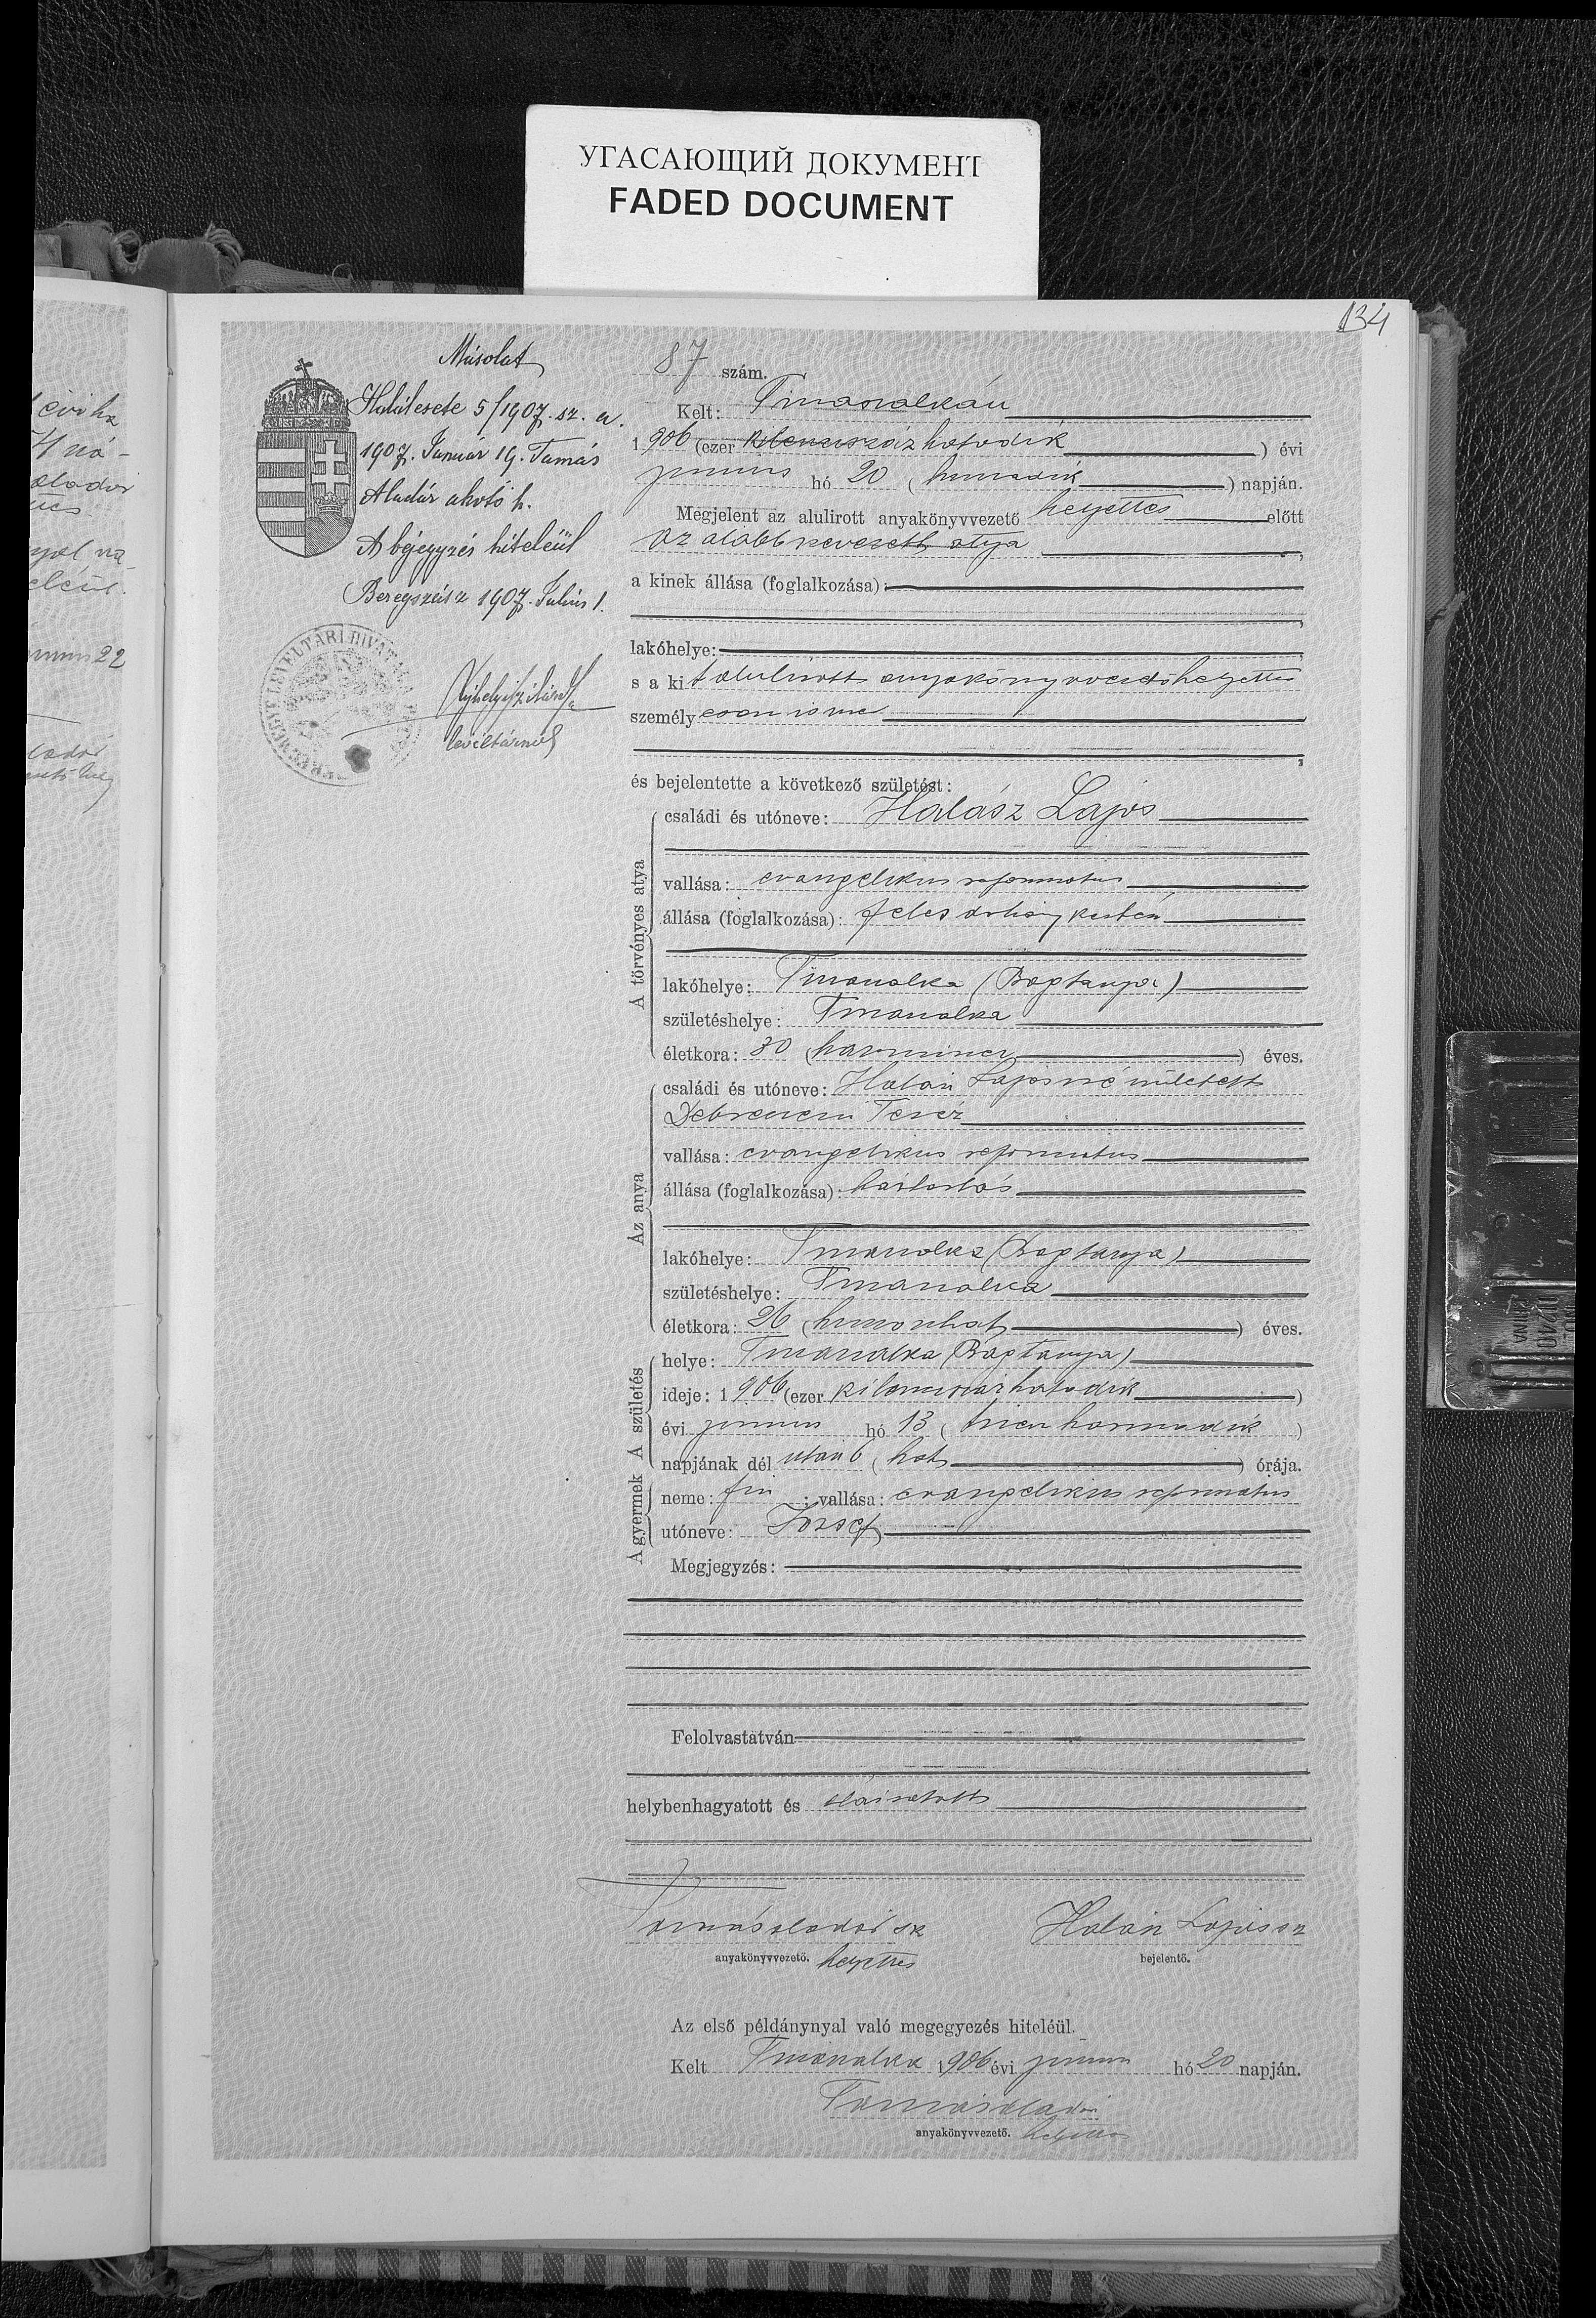 УГАСАЮЩИЙ ДОКУМЕНТ
FADED DOCUMENT
134
Másolat
Halálesete 5/1907. sz. a.
1907. Január 19. Tamás
Aladár akvtő h.
A bejegyzés hiteléül
Beregszász 1907. Julius 1.
levéltárnok
87 szám.
Kelt: Tiszaszalkán
1 906 (ezer kilencszázhatodik ) évi
junius hó 20 ( huszadik ) napján.
Megjelent az alulirott anyakönyvvezető helyettes előtt
az alább nevezett atya ,
a kinek állása (foglalkozása):
lakóhelye:
s a kit alulirott anyakönyvvezetőhelyettes
személyesen ismer
és bejelentette a következő születést:
A törvényes atya
családi és utóneve: Halász Lajos
vallása: evangelikus reformatus
állása (foglalkozása): feles dohánykertész
lakóhelye: Tiszaszalka (Bagtanya)
születéshelye: Tiszaszalka
életkora: 30 (harmincz ) éves.
Az anya
családi és utóneve: Halász Lajosné született
Debreceni Teréz
vallása: evangelikus reformatus
állása (foglalkozása): háztartás
lakóhelye: Tiszaszalka (Bagtanya)
születéshelye: Tiszaszalka
életkora: 26 (huszonhat ) éves.
A születés
helye: Tiszaszalka (Bagtanya)
ideje: 1 906 (ezer kilencszázhatodik )
évi junius hó 13 ( tizenharmadik )
napjának dél után 6 ( hat ) órája.
A gyermek
neme: fiu ; vallása: evangelikus reformatus
utóneve: József
Megjegyzés:
Felolvastatván
helybenhagyatott és aláiratott
Tamás Aladár sk Halász Lajos sz
anyakönyvvezető. helyettes bejelentő.
Az első példánynyal való megegyezés hiteléül.
Kelt Tiszaszalka 1906 évi junius hó 20 napján.
Tamás Aladár
anyakönyvvezető. helyettes